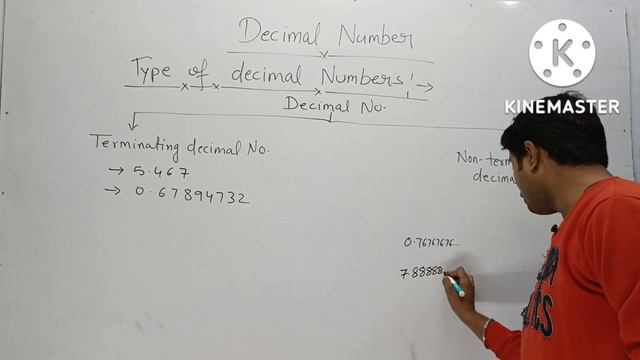 Decimal Number
Type of decimal Numbers:→
Decimal No.
Terminating decimal No.
→ 5.467
→ 0.67894732
Non-term
decima
0.76767676...
7.88888
KINEMASTER